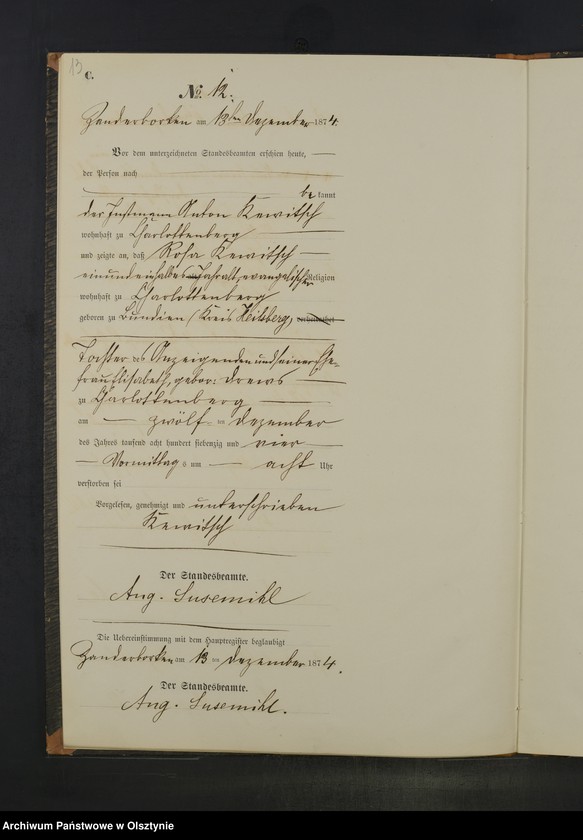 13
C.
No. 12.
Zanderborken am 13ten Dezember 1874.
Vor dem unterzeichneten Standesbeamten erschien heute,
der Person nach
bekannt
der Instmann Anton Kewitsch
wohnhaft zu Charlottenberg
und zeigte an, daß Rosa Kewitsch
einundeinhalbes Jahr alt, evangelischer Religion
wohnhaft zu Charlottenberg
geboren zu Bundien (Kreis Heilsberg) verheirathet
Tochter des Anzeigenden und seiner Ehe-
frau Elisabeth, gebor: Drews
zu Charlottenberg
am zwölf ten Dezember
des Jahres tausend acht hundert siebenzig und vier
Vormittags um acht Uhr
verstorben sei
Vorgelesen, genehmigt und unterschrieben
Kewitsch
Der Standesbeamte.
Aug. Susemihl
Die Uebereinstimmung mit dem Hauptregister beglaubigt
Zanderborken am 13 ten Dezember 1874.
Der Standesbeamte.
Aug. Susemihl.
Archiwum Państwowe w Olsztynie